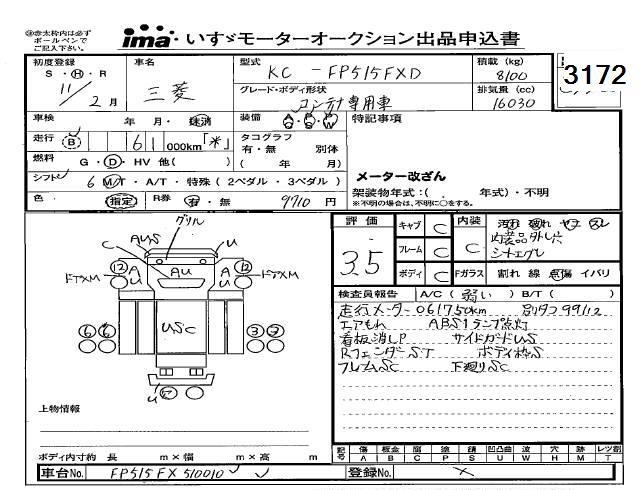 ※赤太枠内は必ず
ボールペンで
ご記入下さい。
ima いすゞモーターオークション出品申込書
初度登録 車名 型式 積載 (kg)
S・H・R 三菱 KC - FP515FXD 8100
11年 2月 グレード・ボディ形状 排気量 (cc)
コンテナ専用車 16030
3172
車検 年 月・抹消 装備 A・P・W 特記事項
走行 B 61 000km「※」 タコグラフ
有・無 別体
燃料 G・D・HV 他( ) ( 年 月)
シフト 6 M/T・A/T・特殊(2ペダル・3ペダル)
メーター改ざん
架装物年式:( 年式)・不明
※不明の場合は、不明に○をする。
色 指定 R券 有・無 9910 円
評価 キャブ C 内装 汚れ 破れ ヤニ スレ
3.5 フレーム C 内装品外し穴
シートエグレ
ボディ C Fガラス 割れ 線 点傷 イバリ
検査員報告 A/C(弱い) B/T( )
走行メーター061750km 別タコ99/12
エアもれ ABS1ランプ点灯
看板消しP サイドガードUS
RフェンダーST ボディ枠S
フレームSC 下廻りSC
グリル
AUS U
C
12 A U AU A U 12
ドアXM ドアXM
6 6 USC 3 3
U
上物情報
ボディ内寸約 長 m×幅 m×高 m
記号 傷 A 板金 B 腐 C 塗 P 錆 S 凹凸曲 U 波 W 穴 H 跡 M レツ割 T
車台No. FP515FX510010 登録No. ×